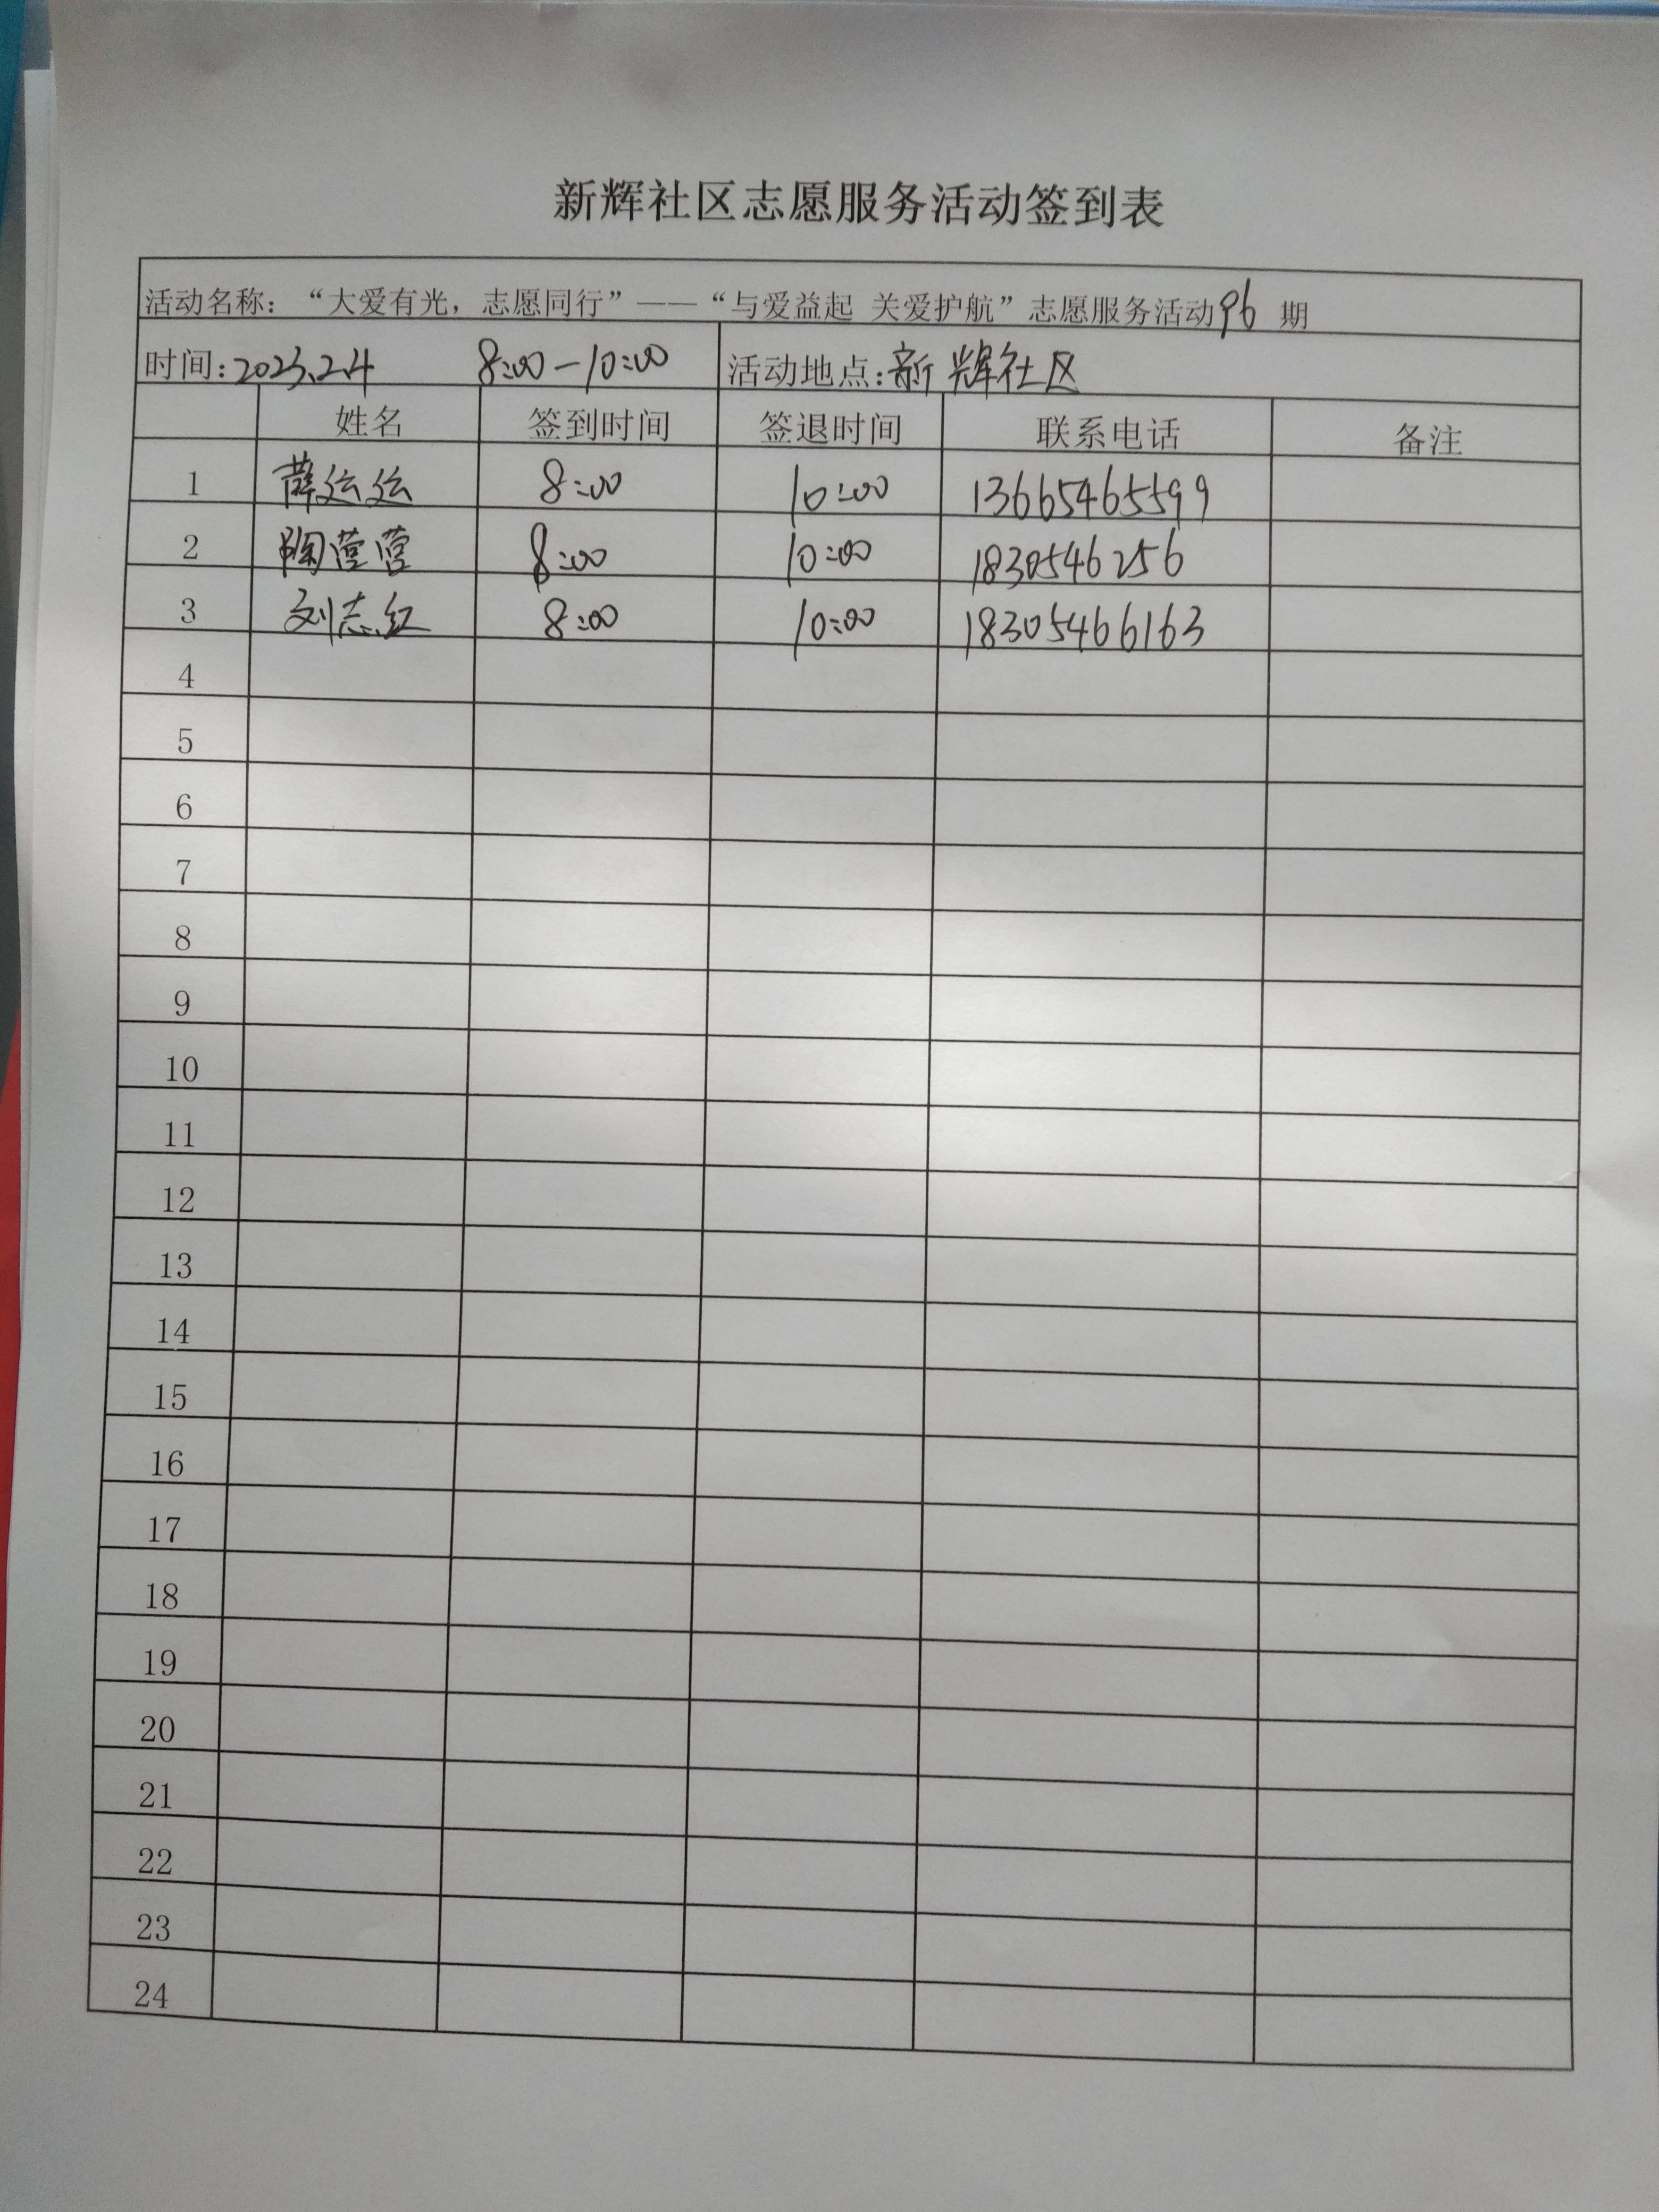 新辉社区志愿服务活动签到表
活动名称：“大爱有光，志愿同行”——“与爱益起 关爱护航”志愿服务活动96 期
时间：2023.2.4 8:00-10:00 活动地点：新辉社区
姓名 签到时间 签退时间 联系电话 备注
1 薛运运 8:00 10:00 13665465599
2 陶营营 8:00 10:00 1830546256
3 刘志红 8:00 10:00 18305466163
4
5
6
7
8
9
10
11
12
13
14
15
16
17
18
19
20
21
22
23
24